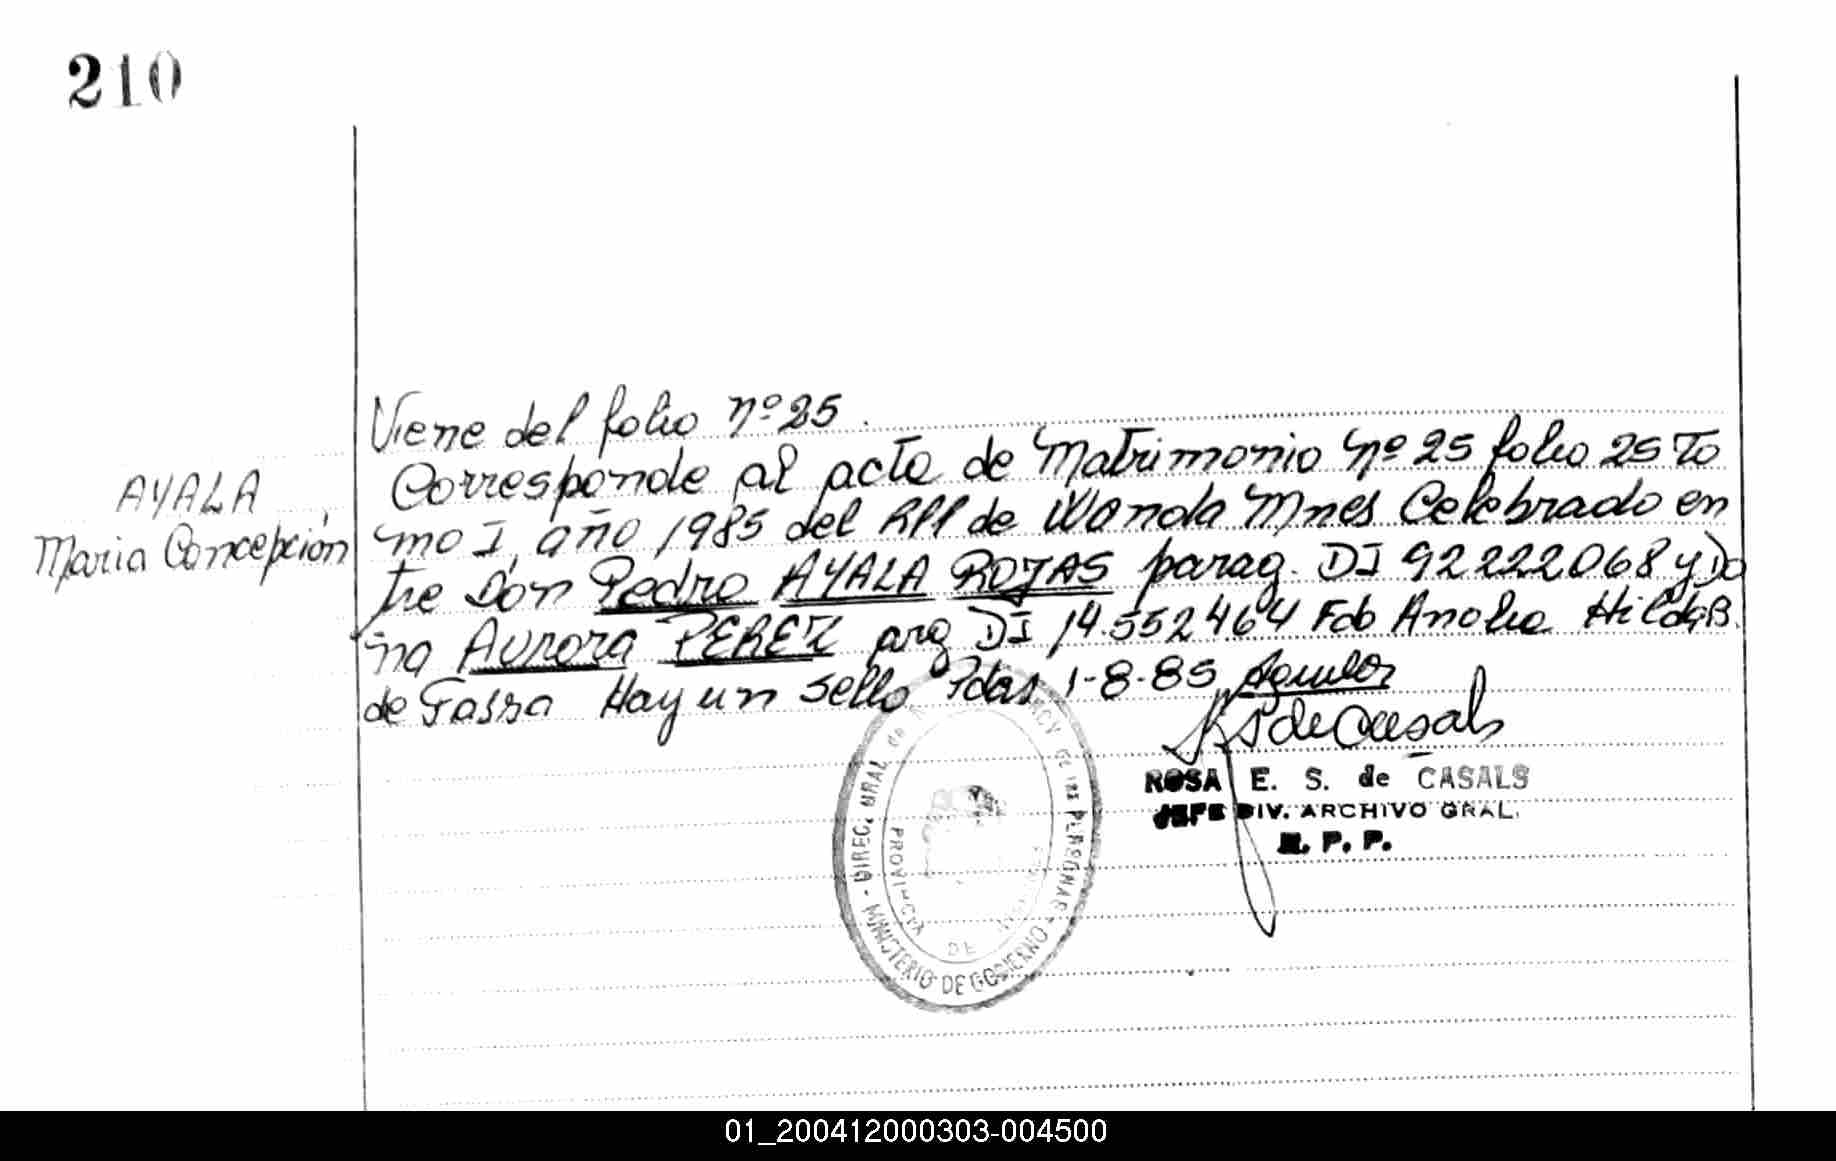 210
Viene del folio nº 25.
AYALA
Maria Concepción
Corresponde al acta de Matrimonio nº 25 folio 25 To
mo I, año 1985 del RPP de Wanda Mnes Celebrado en
tre Don Pedro AYALA ROJAS parag. DI 92222068 y Do
ña Aurora PEREZ arg DI 14.552464 Fdo Analia Hilda B.
de Hay un sello Pdas 1-8-85
de Casals
ROSA E. S. de CASALS
JEFE DIV. ARCHIVO GRAL.
R. P. P.
DIREC. GRAL de PERSONAS
MINISTERIO DE GOBIERNO
PROVINCIA DE MISIONES
01_200412000303-004500